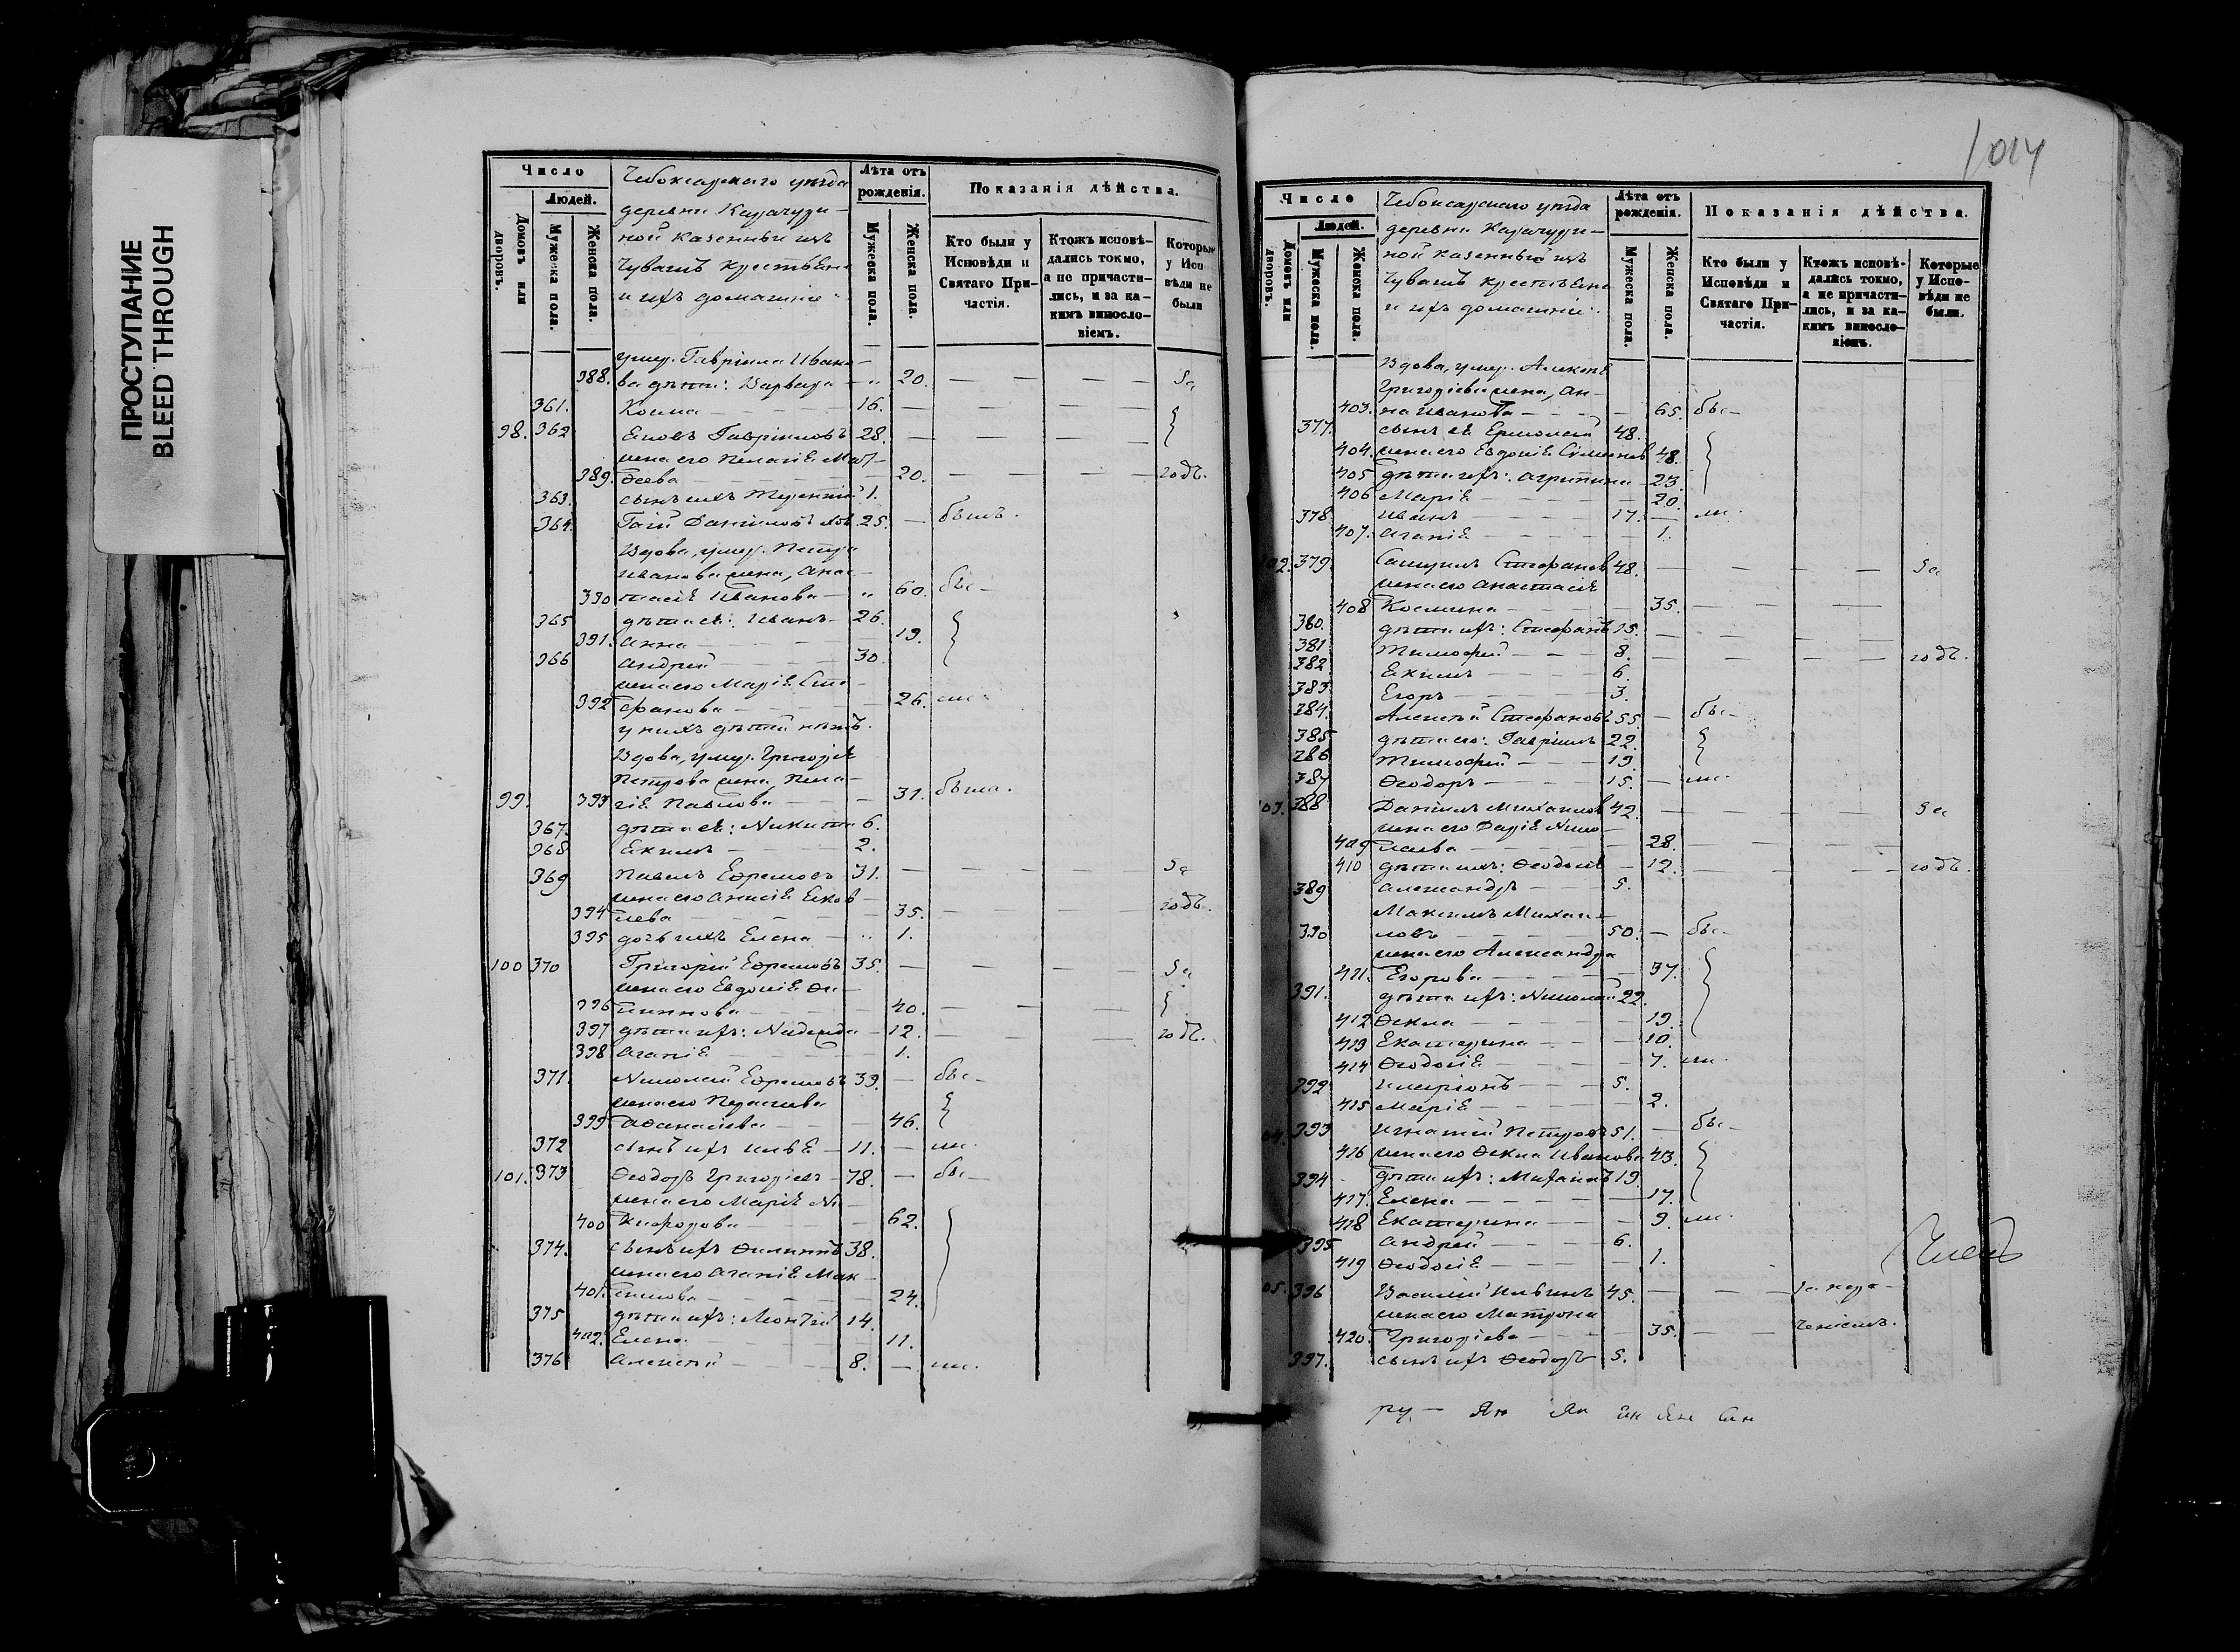 ПРОСТУПАНИЕ
BLEED THROUGH
1014
Число
Людей.
Домовъ или дворовъ.
Мужеска пола.
Женска пола.
Чебоксарскаго уѣзда
деревни
ной казенные изъ
Чувашъ крестьяне
и ихъ домашніе
Лѣта отъ рожденія.
Мужеска пола.
Женска пола.
Показанія дѣйства.
Кто были у Исповѣди и Святаго Причастія.
Ктожъ исповѣдались токмо, а не причастились, и за какимъ винословіемъ.
Которые у Исповѣди не были
умер. Гавріила Ивано-
388. ва дѣти: Варвара — „ 20. — — — — За
361. Козма — 16. — — — —
98. 362 Гавріиловъ 28. — — — —
жена его Пелагія Мат-
389. ѳеева — 20. — — — годъ.
363. сынъ ихъ 1.
364. Даниловъ 25. — былъ.
Вдова, умер. Петра
Иванова жена, Анас-
390 тасія Иванова — „ 60. бы-
365 дѣти ея: Иванъ 26.
391. Анна — 19.
366 Андрей 30.
жена его Марія Сте-
392 фанова — 26. ли.
у нихъ дѣтей нѣтъ.
Вдова, умер. Григорія
Петрова жена, Пела-
99. 393 гія Павлова — 31. была.
367. дѣти ея: Никита 6.
368 Екимъ — 2.
369 Павелъ Ефремовъ 31. — — — — За
жена его Анисія
394 лева — 35. — — — годъ.
395 дочь ихъ Елена — „ 1.
100 370 Григорій Ефремовъ 35. — — — — За
жена его Евдокія Фи-
396 липпова — 40. — — —
397 дѣти ихъ: Надежда — 12. — — — годъ.
398 Агапія — 1.
371. Николай Ефремовъ 39. — бы-
жена его
399 Аѳанасіева — 46.
372 сынъ ихъ Илья — 11. — ли.
101. 373 Ѳеодоръ Григорьевъ — 78. — бы-
жена его Марія Ни-
400 кифорова — 62.
374. сынъ ихъ Филиппъ 38.
жена его Агапія Мак-
401. симова — 24.
375 дѣти ихъ: 14.
402. Елена — 11.
376 Алексѣй — 8. — ли.
Число
Людей.
Домовъ или дворовъ.
Мужеска пола.
Женска пола.
Чебоксарскаго уѣзда
деревни
ной казенные изъ
Чувашъ крестьяне
и ихъ домашніе
Лѣта отъ рожденія.
Мужеска пола.
Женска пола.
Показанія дѣйства.
Кто были у Исповѣди и Святаго Причастія.
Ктожъ исповѣдались токмо, а не причастились, и за какимъ винословіемъ.
Которые у Исповѣди не были.
Вдова, умер. Алексѣя
Григорьева жена, Ан-
403. на Иванова — 65. бы-
377. сынъ ея Ермолай 48.
404. жена его Евдокія 48.
405 дѣти ихъ: Агрипина — 23.
406 Марія — 20.
378. Иванъ — 17. — ли.
407. Агапія — 1.
102. 379. Самуилъ Стефановъ 48. — — — — За
жена его Анастасія
408 Космина — 35. — — —
380. дѣти ихъ: Стефанъ 15. — — —
381 Тимофей — 8. — — — — годъ.
382 Екимъ — 6.
383 Егоръ — 3.
384. Алексѣй Стефановъ 55. — бы-
385 дѣти его: Гавріилъ 22.
386 Тимофей — 19.
387 Ѳеодоръ — 15. — ли.
103. 388 Даніилъ Михаиловъ 42. — — — За
жена его Дарія Нико-
409 лаева — 28. — —
410 дѣти ихъ: — 12. — — — — годъ.
389 Александръ — 5.
Максимъ Михаи-
390 ловъ — 50. — бы-
жена его Александра
411. Егорова — 37.
391. дѣти ихъ: Николай 22.
412 Ѳекла — 19.
413 Екатерина — 10.
414 Ѳеодосія — 7. ли.
392 Иларіонъ — 5.
415 Марія — 2.
104. 393 Игнатій Петровъ 51. — бы-
416 жена его Ѳекла Иванова 43.
394 дѣти ихъ: Михаилъ 19.
417. Елена — 17.
418 Екатерина — 9. ли.
395 Андрей — 6.
419 Ѳеодосія — 1.
105. 396 Василій Ильинъ 45. — — за нера-
жена его Матрона
420. Григорьева — 35. — — ченіемъ.
397. сынъ ихъ Ѳеодоръ 5.